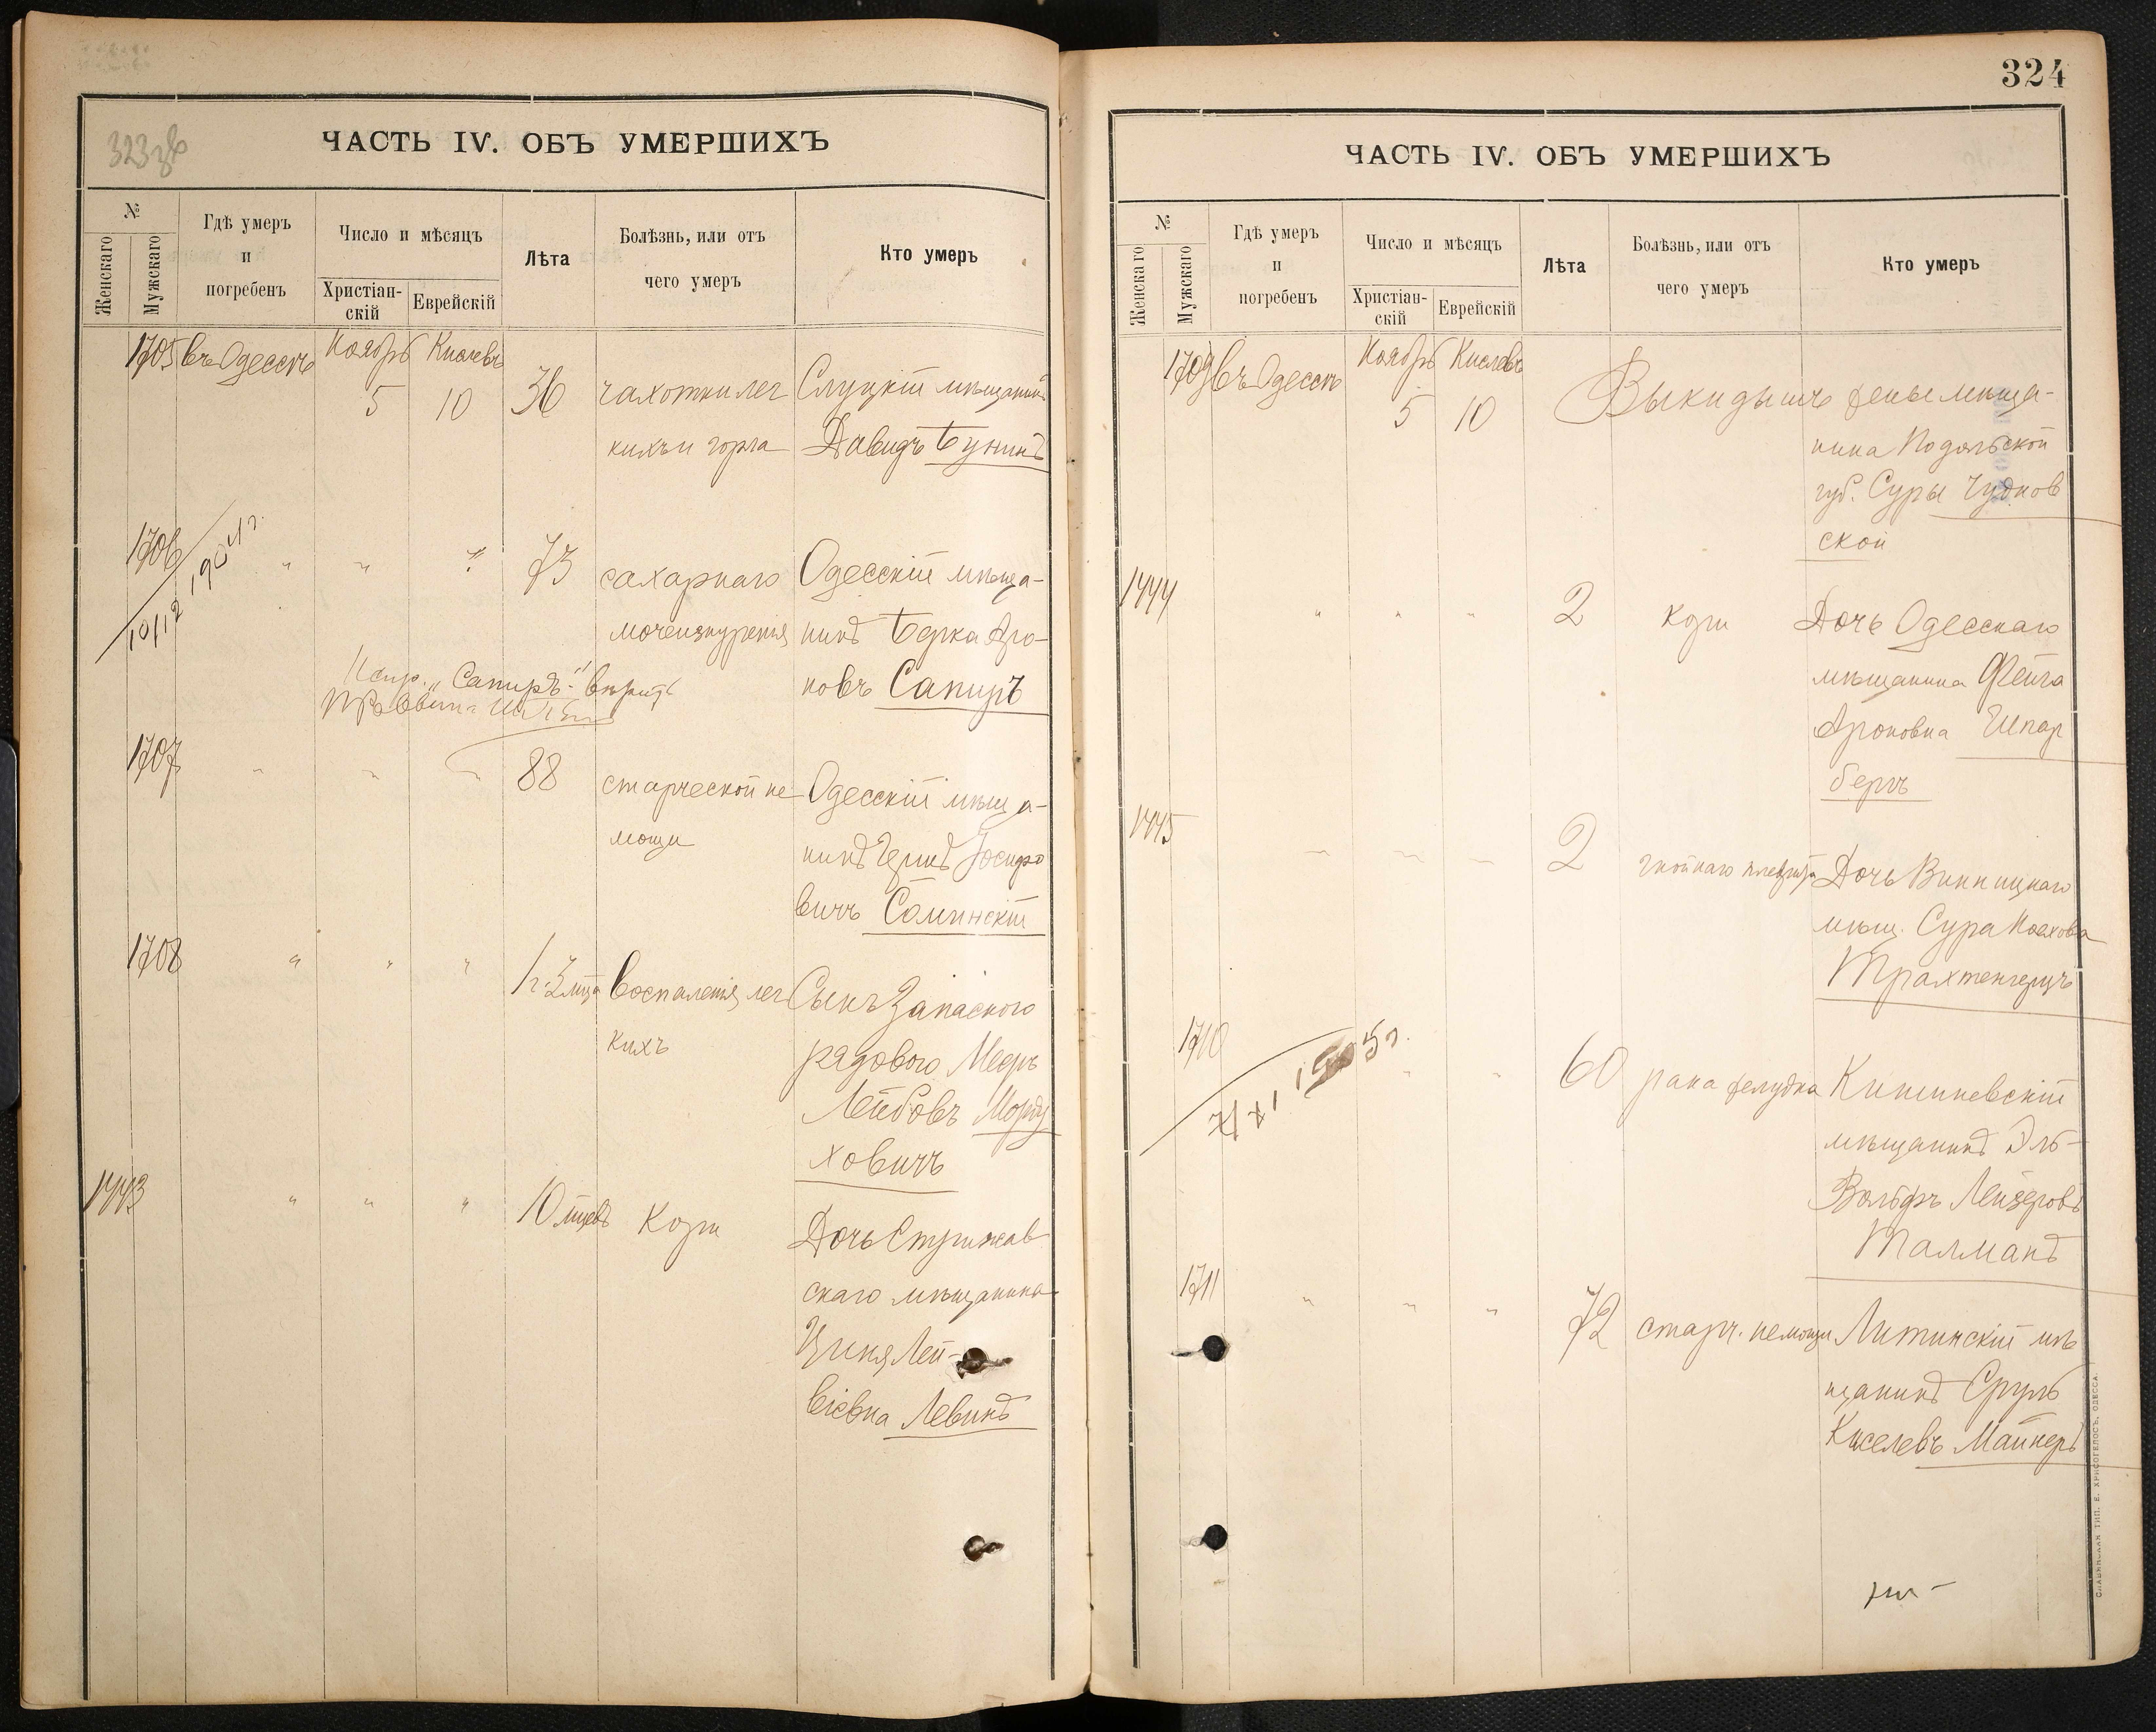 323 зв
ЧАСТЬ IV. ОБЪ УМЕРШИХЪ
№
Женскаго
Мужскаго
Гдѣ умеръ
и
погребенъ
Число и мѣсяцъ
Христіан-
скій
Еврейскій
Лѣта
Болѣзнь, или отъ
чего умеръ
Кто умеръ
1705 въ Одессѣ Ноябрь Кислевъ
5 10 36 чахотки лег Слуцкій мѣщанинъ
кихъ и горла Давидъ Бунинъ
1706 " " " 73 сахарнаго Одесскій мѣща-
10/12 1904 г.
мочеизнуренія нинъ Берка Аро-
Испр. "Сапиръ" вѣрить
новъ Сапиръ
1707 " " " 88 старческой не Одесскій мѣща-
мощи нинъ Іосифо
вичъ Соминскій
1708 " " " 1 г. 3 мца воспаленія лег Сынъ Запаснаго
кихъ рядового Мееръ
Лейбовъ Морду
ховичъ
1443 " " " 10 мцевъ Кори Дочь Стрижав
скаго мѣщанина
Лей-
віевна Левинъ
324
ЧАСТЬ IV. ОБЪ УМЕРШИХЪ
№
Женскаго
Мужскаго
Гдѣ умеръ
и
погребенъ
Число и мѣсяцъ
Христіан-
скій
Еврейскій
Лѣта
Болѣзнь, или отъ
чего умеръ
Кто умеръ
1709 въ Одессѣ Ноябрь Кислевъ
5 10 Выкидышъ жены мѣща-
нина Подольской
губ. Суры Чуднов
ской
1444 " " " 2 Кори Дочь Одесскаго
мѣщанина Фейга
Ароновна Шпар
бергъ
1445 " " " 2 гнойнаго плеврита Дочь Винницкаго
мѣщ. Сура
Трахтенгерцъ
1710 " " 60 рака желудка Кишиневскій
XI 1905 г.
мѣщанинъ Эль-
Вольфъ Лейзеровъ
Талманъ
1711 " " " 72 старч. немощи Литинскій мѣ
щанинъ Сруль
Киселевъ Майнеръ
СЛАВЯНСКАЯ ТИП. Е. ХРИСОГЕЛОСЪ, ОДЕССА.